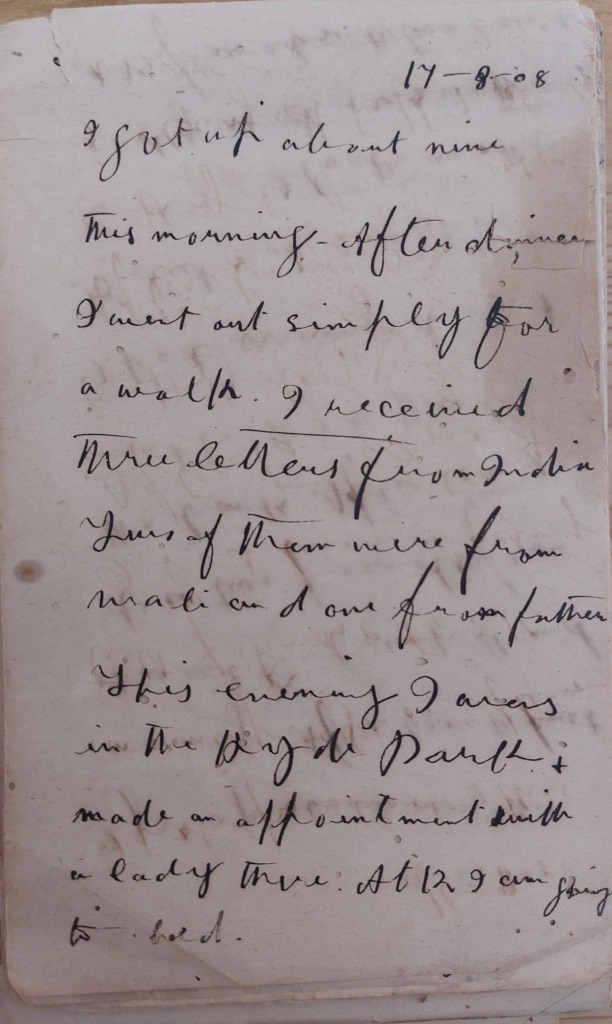 17-8-08
I got up about nine
this morning - After dinner
I went out simply for
a walk. I received
three letters from India
Two of them were from
mali and one from father
This evening I was
in the Hyde Park &
made an appointment with
a lady there. At 12 I am going
to bed.